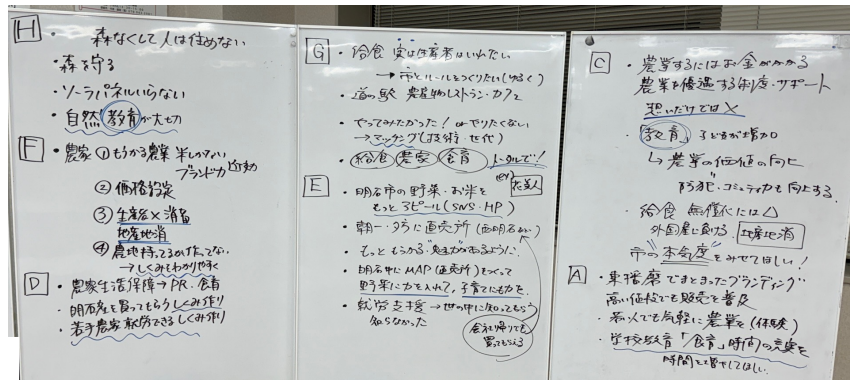 H
・森なくして人は住めない
・森を守る
・ソーラパネルいらない
・自然教育が大切
F
・農家 ① もうかる農業 米しかない
ブランド力
② 価格設定
③ 生産者×消費
地産地消
④ 農地持ってるか
→しくみをわかりやすく
D
・農家生活保障→PR・食育
・明石産を買ってもらうしくみ作り
・若手農家就労できるしくみ作り
G
・給食 はいれたい
→市とルールをつくりたい(ゆるく)
・道の駅 農産物レストラン・カフェ
・やってみたかった! はやりたくない
→マッチング(技術・世代)
・給食 農家 食育 トータルで!
E
・明石市の野菜・お米を
もっとアピール(SNS・HP)
・朝一・夕方に直売所(西明石
・もっともうかる があるように
・明石中にMAP(直売所)をつくって
野菜に力を入れて、子育てにも力を
・就労支援→世の中に知ってもらう
知らなかった
会社帰りでも
買ってもらえる
C
・農業するにはお金がかかる
農業を優遇する制度・サポート
想いだけでは×
・「教育」子どもが増加
↳農業の価値の向上
防犯・コミュティ力も向上する
・給食 無償化には△
外国産に負ける 地産地消
市の"本気度"をみせてほしい!
A
・東播磨でまとまったブランディング
高い値段でも販売を普及
・素人でも気軽に農業を(体験)
・学校教育「食育」時間の充実を
時間をを増やしてほしい。